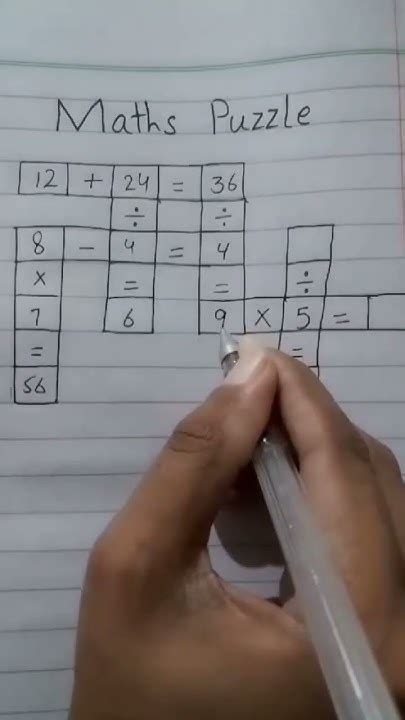 Maths Puzzle
12 + 24 = 36
÷ ÷
8 - 4 = 4
x = = ÷
7 6 9 x 5 =
= =
56